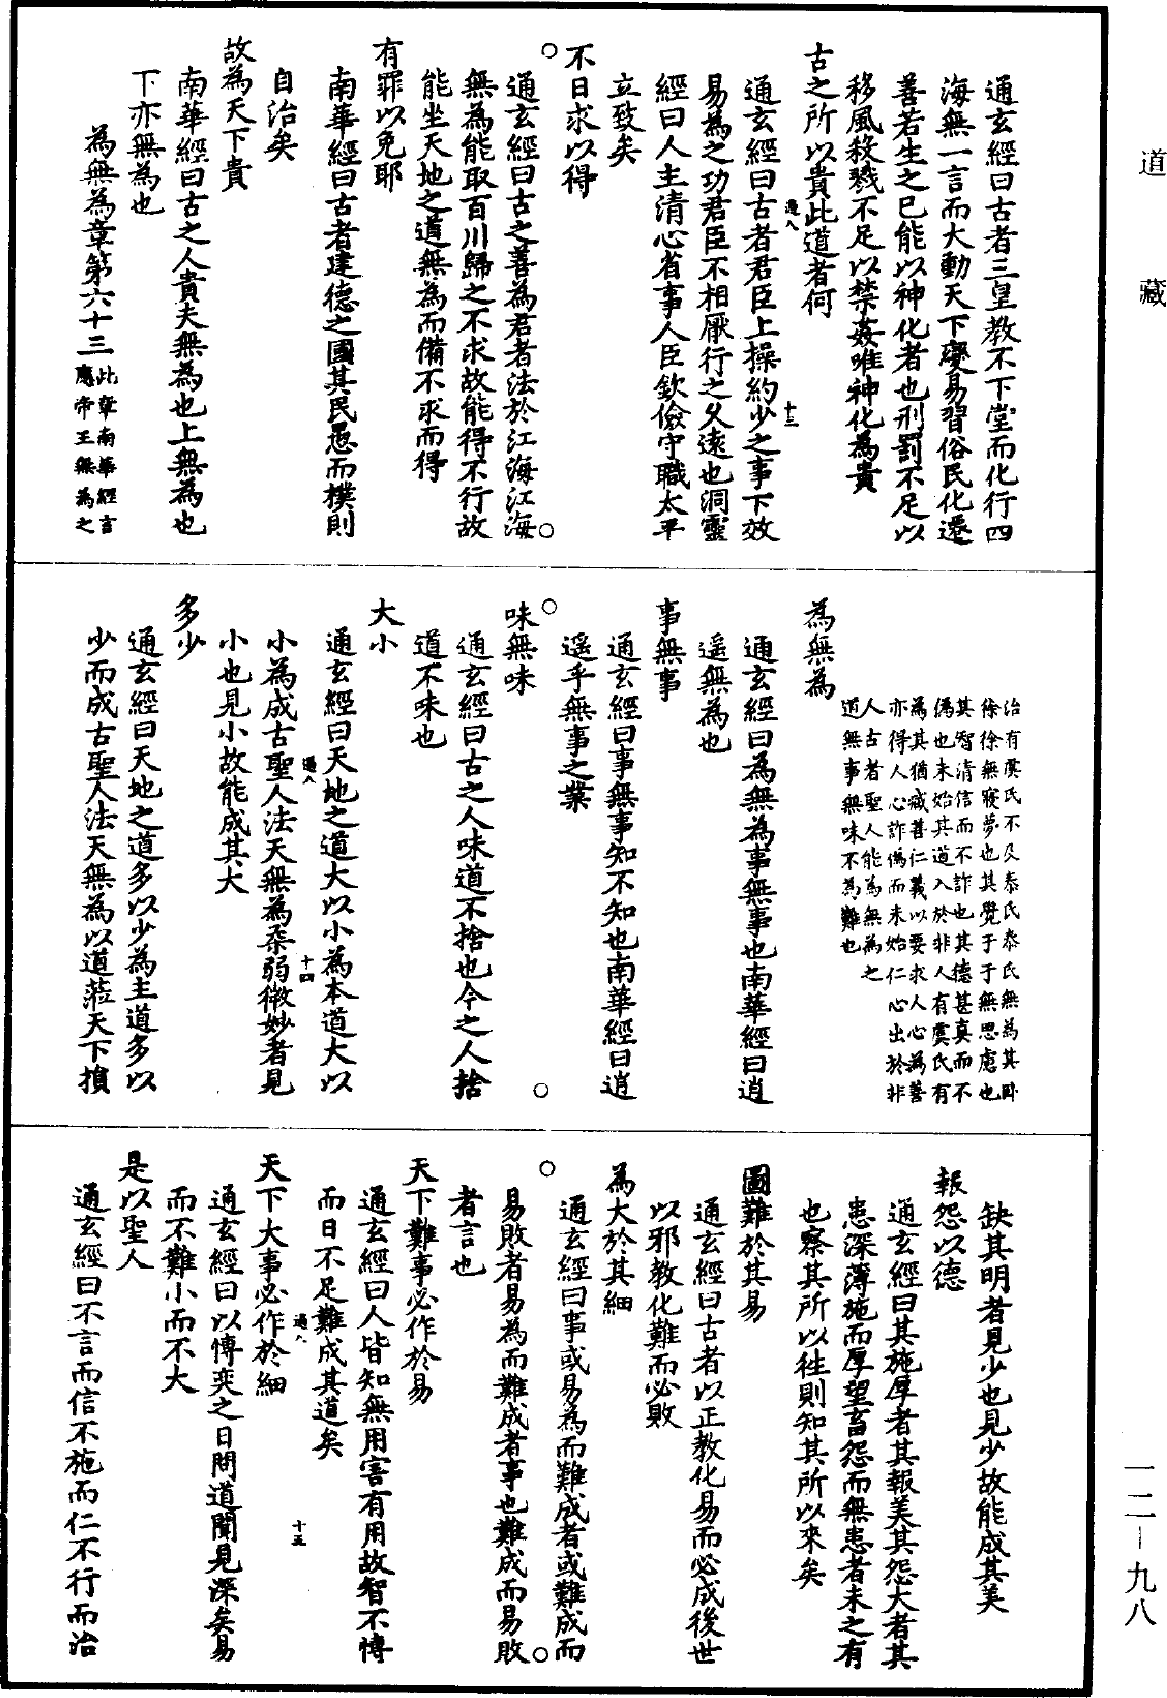 道藏
通玄經曰古者三皇教不下堂而化行四
海無一言而大動天下變易習俗民化遷
善若生之已能以神化者也刑罰不足以
移風殺戮不足以禁姦唯神化為貴
古之所以貴此道者何
通八
十三
通玄經曰古者君臣上操約少之事下效
易為之功君臣不相厭行之久遠也洞靈
經曰人主清心省事人臣欽儉守職太平
立致矣
不日求以得
通玄經曰古之善為君者法於江海江海
無為能取百川歸之不求故能得不行故
能坐天地之道無為而備不求而得
有罪以免耶
南華經曰古者建德之國其民愚而樸則
自治矣
故為天下貴
南華經曰古之人貴夫無為也上無為也
下亦無為也
為無為章第六十三
此章南華經言
應帝王無為之
治有虞氏不及泰氏泰氏無為其臥
徐徐無寢夢也其覺于于無思慮也
其智清信而不詐也其德甚真而不
偽也未始其道入於非人有虞氏有
為其猶藏善仁義以要求人心為善
亦得人心詐偽而未始仁心出於非
人古者聖人能為無為之
道無事無味不為難也
為無為
通玄經曰為無為事無事也南華經曰逍
遥無為也
事無事
通玄經曰事無事知不知也南華經曰逍
遥乎無事之業
味無味
通玄經曰古之人味道不捨也今之人捨
道不味也
大小
通玄經曰天地之道大以小為本道大以
通八
十四
小為成古聖人法天無為柔弱微妙者見
小也見小故能成其大
多少
通玄經曰天地之道多以少為主道多以
少而成古聖人法天無為以道蒞天下損
缺其明者見少也見少故能成其美
報怨以德
通玄經曰其施厚者其報美其怨大者其
患深薄施而厚望畜怨而無患者未之有
也察其所以徃則知其所以來矣
圖難於其易
通玄經曰古者以正教化易而必成後世
以邪教化難而必敗
為大於其細
通玄經曰事或易為而難成者或難成而
易敗者易為而難成者事也難成而易敗
者言也
天下難事必作於易
通玄經曰人皆知無用害有用故智不愽
而日不足難成其道矣
通八
十五
天下大事必作於細
通玄經曰以愽奕之日問道聞見深矣易
而不難小而不大
是以聖人
通玄經曰不言而信不施而仁不行而治
一二－九八